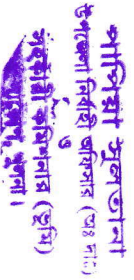 সুলতানা
উপজেলা নির্বাহী অফিসার (অঃ দাঃ)
ও
সহকারী কমিশনার (ভূমি)